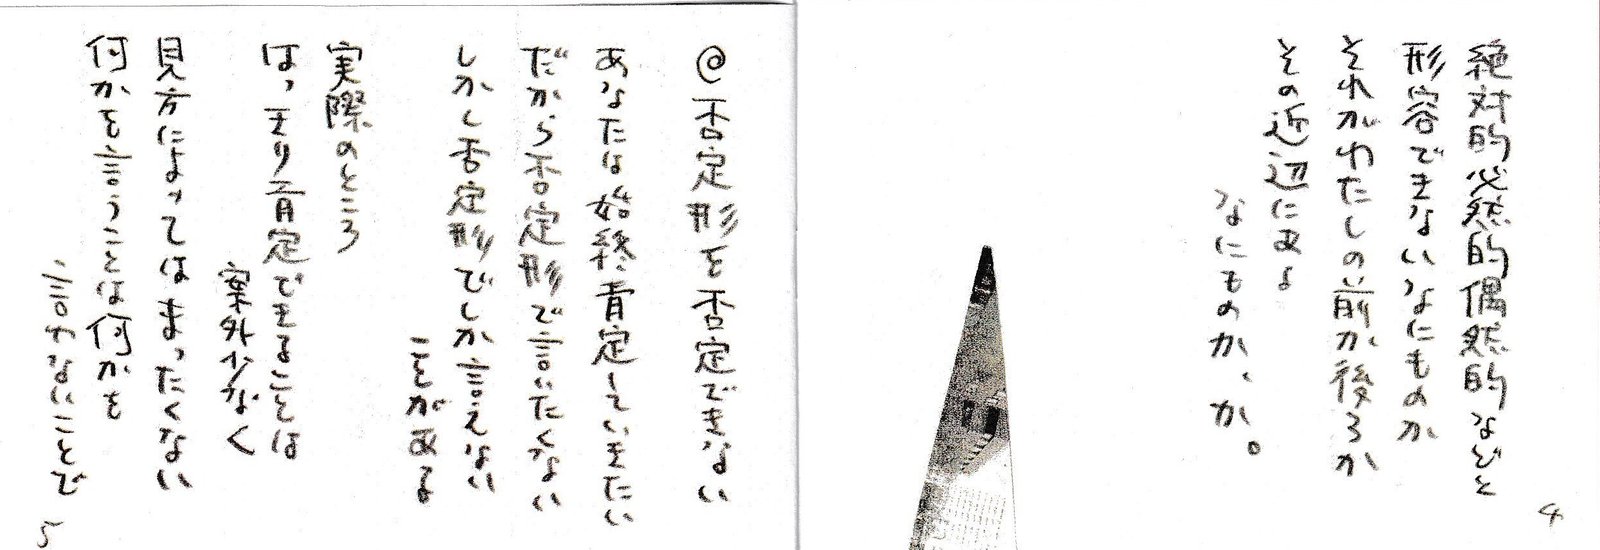 絶対的必然的偶然的などと
形容できないなにものか
それがわたしの前か後ろか
その近辺にあよ
なにものか、か。
4
@否定形を否定できない
あなたは始終肯定していきたい
だから否定形で言いたくない
しかし否定形でしか言えない
ことがある
実際のところ
はっきり肯定できることは
案外少なく
見方によってはまったくない
何かを言うことは何かを
言わないことで
5